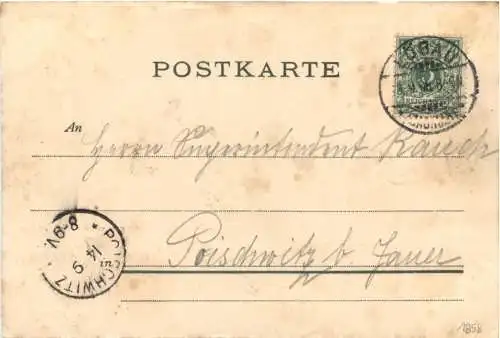 POSTKARTE
An
Herrn Superintendent Rauch
Poischwitz b. Jauer
POISCHWITZ
14
9
8-9V.
1898